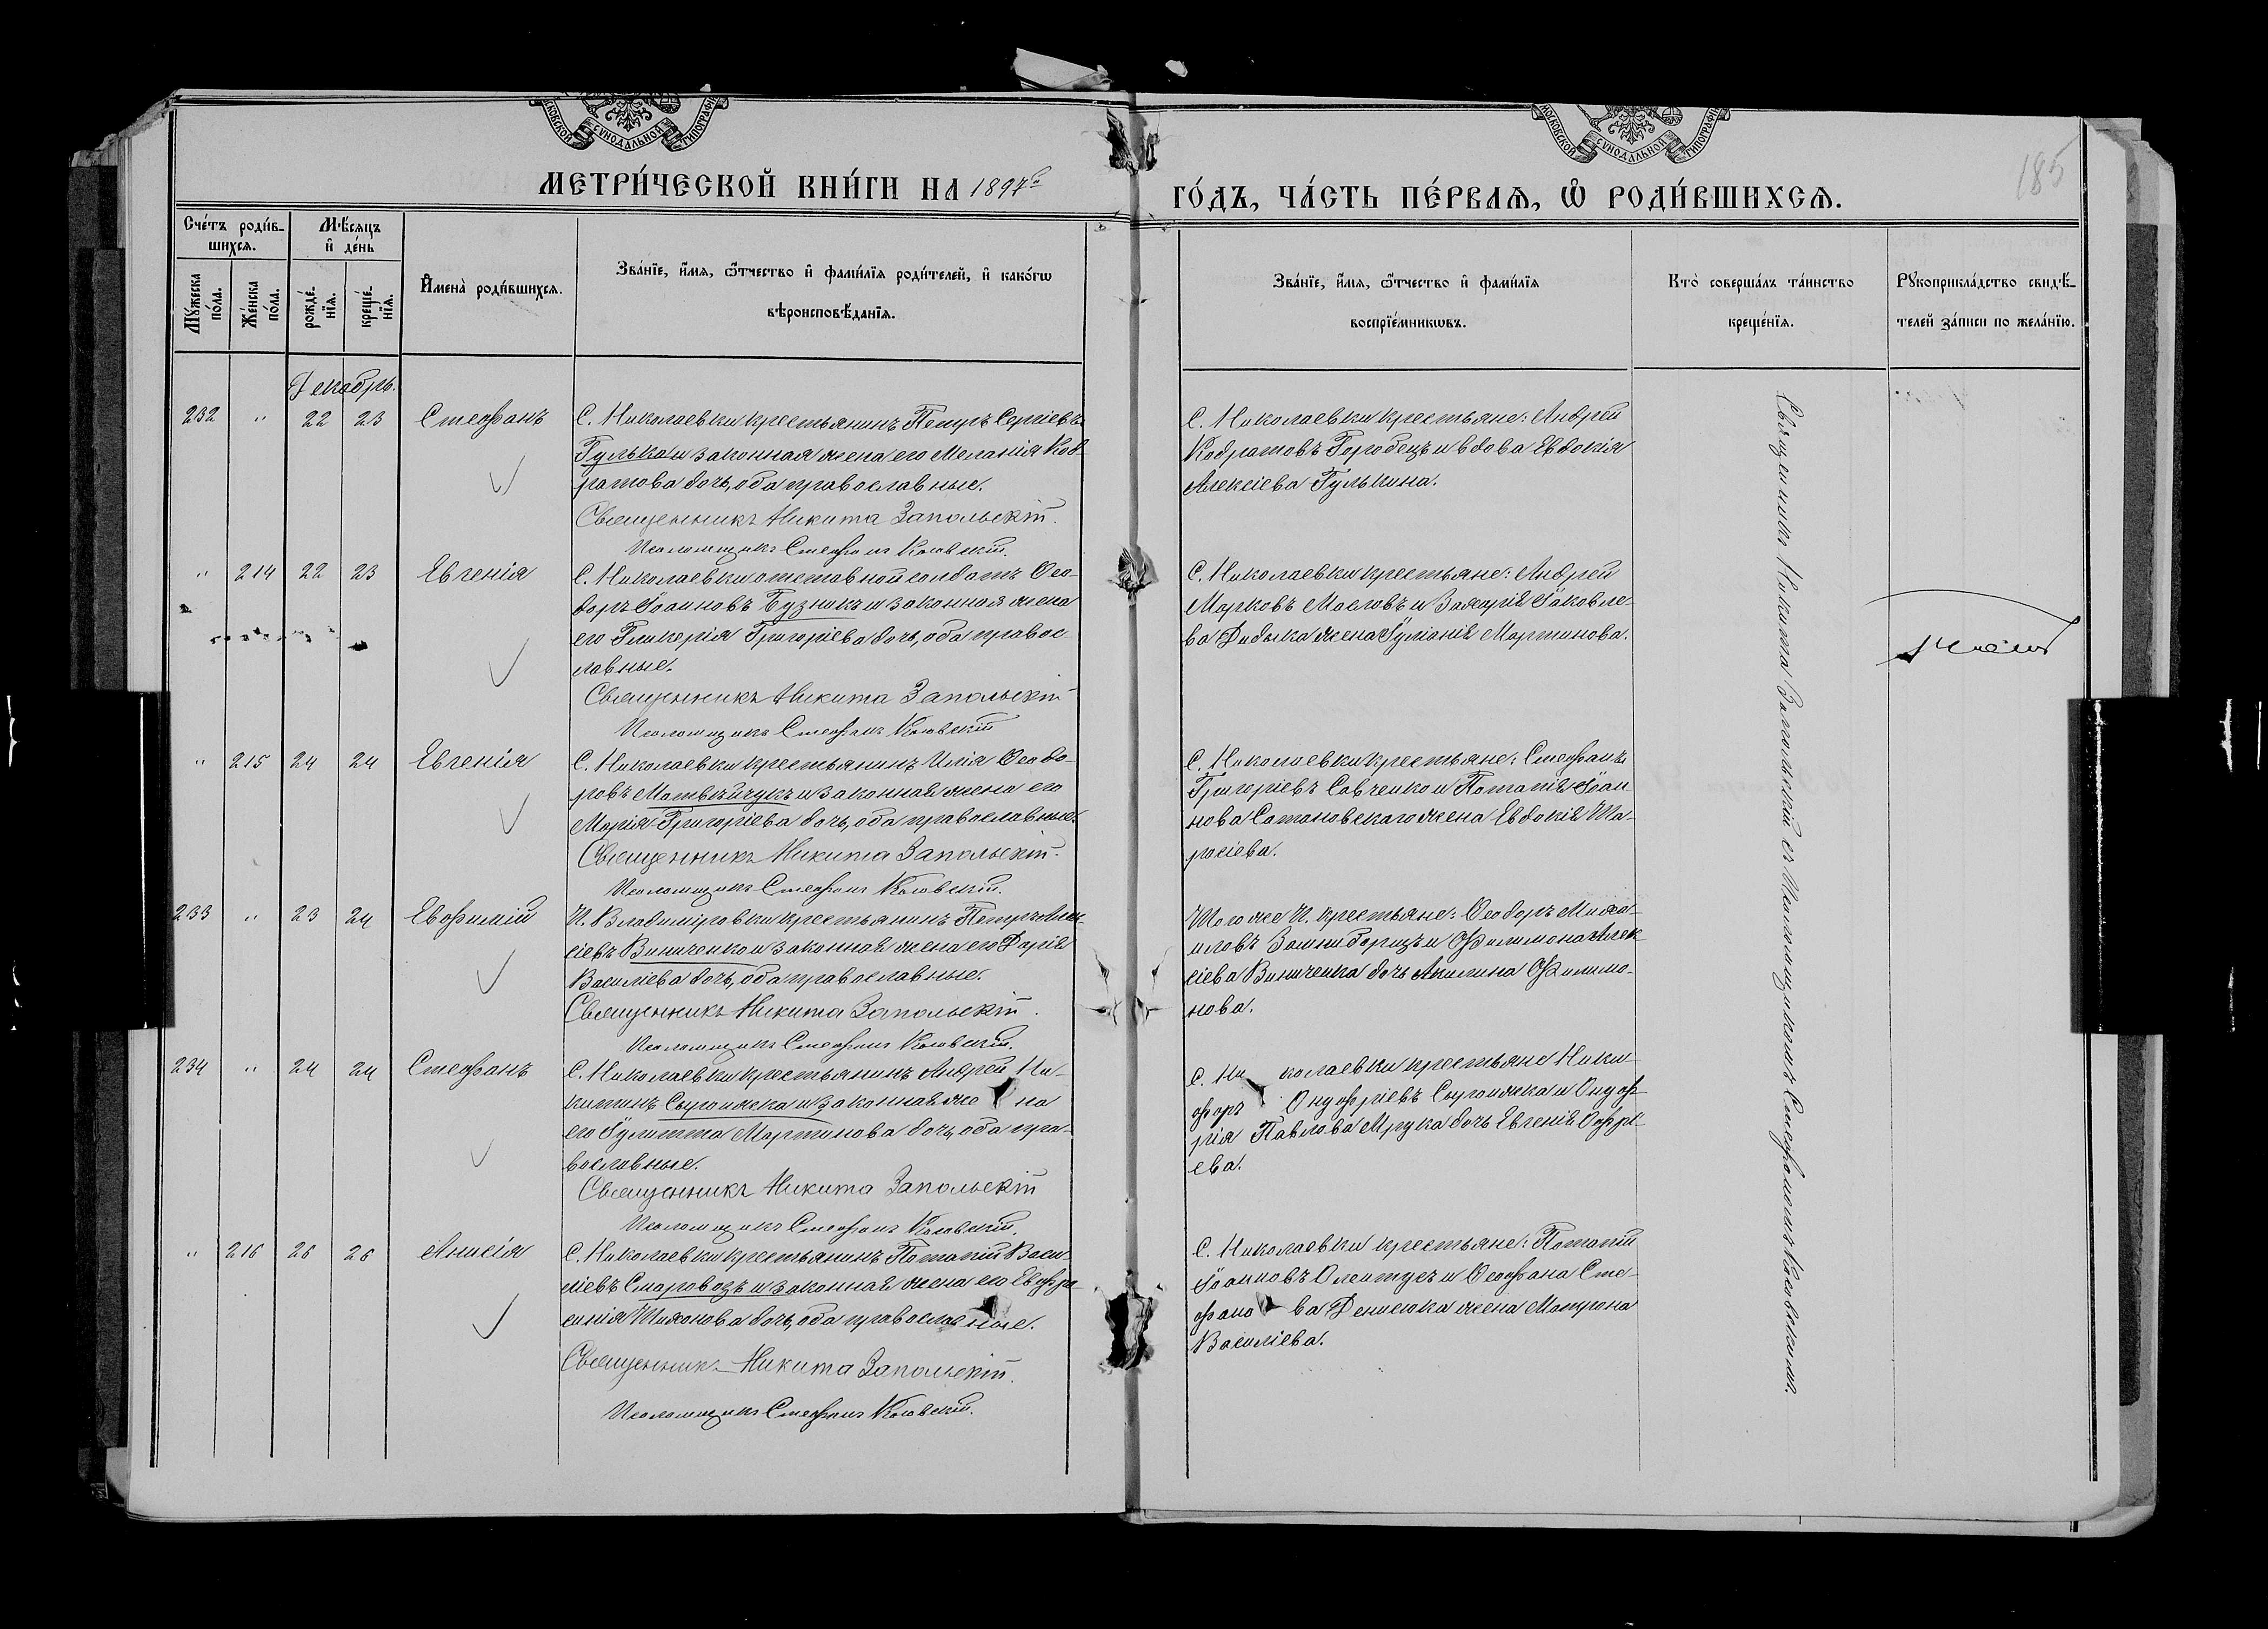 МОСКОВСКОЙ СѴНОДАЛЬНОЙ ТИПОГРАФІ
МОСКОВСКОЙ СѴНОДАЛЬНОЙ ТИПОГРАФІ
185
МЕТРИ́ЧЕСКОЙ КНИ́ГИ НА 1897й
ГО́ДЪ, ЧА́СТЬ ПЕ́РВАѦ, Ѡ҆ РОДИ́ВШИХСѦ.
Сче́тъ роди́в-
шихсѧ.
Мꙋ́жеска по́ла.
Же́нска по́ла.
Мѣ́сѧцъ
и҆ де́нь
рожде́-
нїѧ.
креще́-
нїѧ.
И҆мена̀ роди́вшихсѧ.
Зва́нїе, и҆́мѧ, ѻ҆́тчество и҆ фами́лїѧ роди́телей, и҆ како́гѡ
вѣроисповѣ́данїѧ.
Зва́нїе, и҆́мѧ, ѻ҆́тчество и҆ фами́лїѧ
воспрїе́мникѡвъ.
Кто̀ соверша́лъ та́инство
креще́нїѧ.
Рꙋкоприкла́дство свидѣ́-
телей за́писи по жела́нїю.
Декабрь.
232 " 22 23 Стефанъ
С. Николаевки крестьянинъ Петръ Сергіевъ
Гулька и законная жена его Меланія Код-
ратова дочь, оба православные.
Священникъ Никита Запольскій.
Псаломщикъ Стефанъ Косовскій.
С. Николаевки крестьяне: Андрей
Кодратовъ Городецъ и вдова Евдокія
Алексіева Гулькина.
" 214 22 23 Евгенія
С. Николаевки отставной солдатъ Ѳео-
доръ Іоанновъ Бузникъ и законная жена
его Гликерія Григоріева дочь, оба правос-
лавные.
Священникъ Никита Запольскій
Псаломщикъ Стефанъ Косовскій
С. Николаевки крестьяне: Андрей
Марковъ Масловъ и Захарія Іаковле-
ва Дидыка жена Іуліанія Мартинова.
" 215 24 24 Евгенія
С. Николаевки крестьянинъ Илія Ѳеодо-
ровъ Матвѣйчукъ и законная жена его
Марія Григоріева дочь, оба православные.
Священникъ Никита Запольскій.
Псаломщикъ Стефанъ Косовскій.
С. Николаевки крестьяне: Стефанъ
Григоріевъ Савченко и Потапія Іоан
нова Сатановскаго жена Евдокія Та-
расіева.
233 " 23 24 Евфимій
И. Владиміровки крестьянинъ Петръ Алек-
сіевъ Виниченко и законная жена его Дарія
Василіева дочь, оба православные.
Священникъ Никита Запольскій.
Псаломщикъ Стефанъ Косовскій.
Того же И. крестьяне: Ѳеодоръ Миха-
иловъ и Филимона Алек
сіева Виниченка дочь Акилина Филимо-
нова.
234 " 24 24 Стефанъ
С. Николаевки крестьянинъ Андрей Ни-
китинъ Сыроижка и законная же на
его Іулитта Мартинова дочь, оба пра-
вославные.
Священникъ Никита Запольскій
Псаломщикъ Стефанъ Косовскій.
С. Ни колаевки крестьяне Ники-
форъ Онуфріевъ Сыроижка и Онуф-
рія Павлова Мрука дочь Евгенія Онфрі-
ева.
" 216 26 26 Анисія
С. Николаевки крестьянинъ Потапій Васи-
ліевъ Старовозъ и законная жена его Евфра-
синія Тихонова дочь, оба православ ные.
Священникъ Никита Запольскій.
Псаломщикъ Стефанъ Косовскій.
С. Николаевки крестьяне: Потапій
Іоанновъ и Ѳеофана Сте-
фано ва Денисюка жена Матрона
Василіева.
Священникъ Никита Запольскій съ Псаломщикомъ Стефаномъ Косовскимъ.